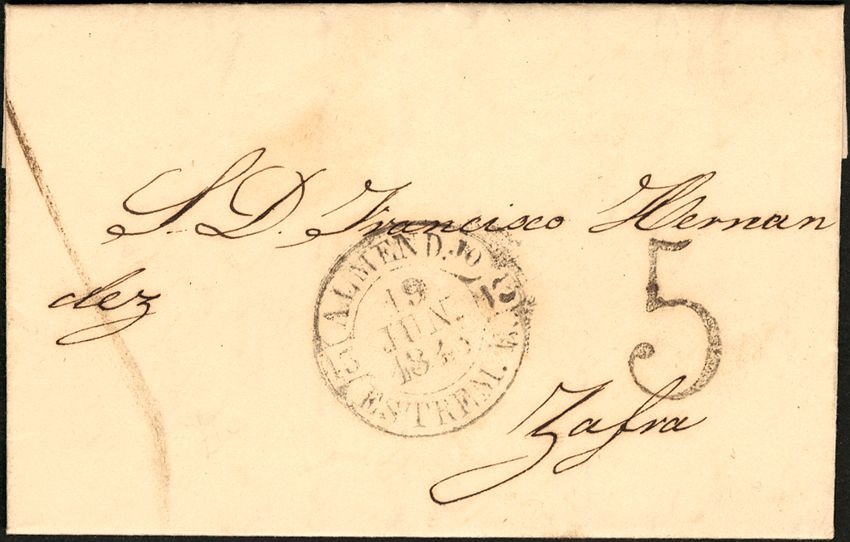 S. D. Francisco Hernan
dez
ALMEND.JO
19
JUN.
ESTREM.
5
Zafra